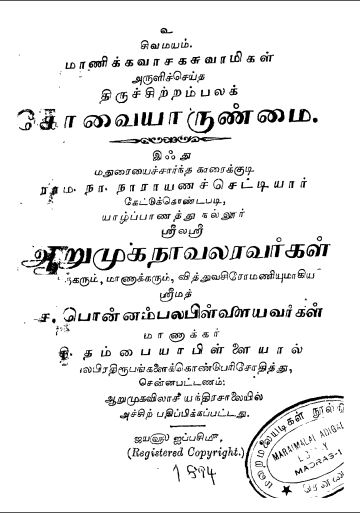 உ
சிவமயம்.
மாணிக்கவாசகசுவாமிகள்
அருளிச்செய்த
திருச்சிற்றம்பலக்
கோவையாருண்மை.
இஃது
மதுரையைச்சார்ந்த காரைக்குடி
ராம. நா. நாராயணச்செட்டியார்
கேட்டுக்கொண்டபடி,
யாழ்ப்பாணத்து நல்லூர்
ஸ்ரீலஸ்ரீ
ஆறுமுகநாவலரவர்கள்
மருகரும், மாணாக்கரும், வித்துவசிரோமணியுமாகிய
ஸ்ரீமத்
ச. பொன்னம்பலபிள்ளையவர்கள்
மாணாக்கர்
தம்பையாபிள்ளையால்
பலபிரதிரூபங்களைக்கொண்டுபரிசோதித்து,
சென்னபட்டணம்:
ஆறுமுகவிலாச யந்திரசாலையில்
அச்சிற் பதிப்பிக்கப்பட்டது.
ஜயவரு ஐப்பசிமீ
(Registered Copyright.)
1894
மறைமலையடிகள் நூல்
MARAIMALAI ADIGAL
MADRAS-1
சென்னை